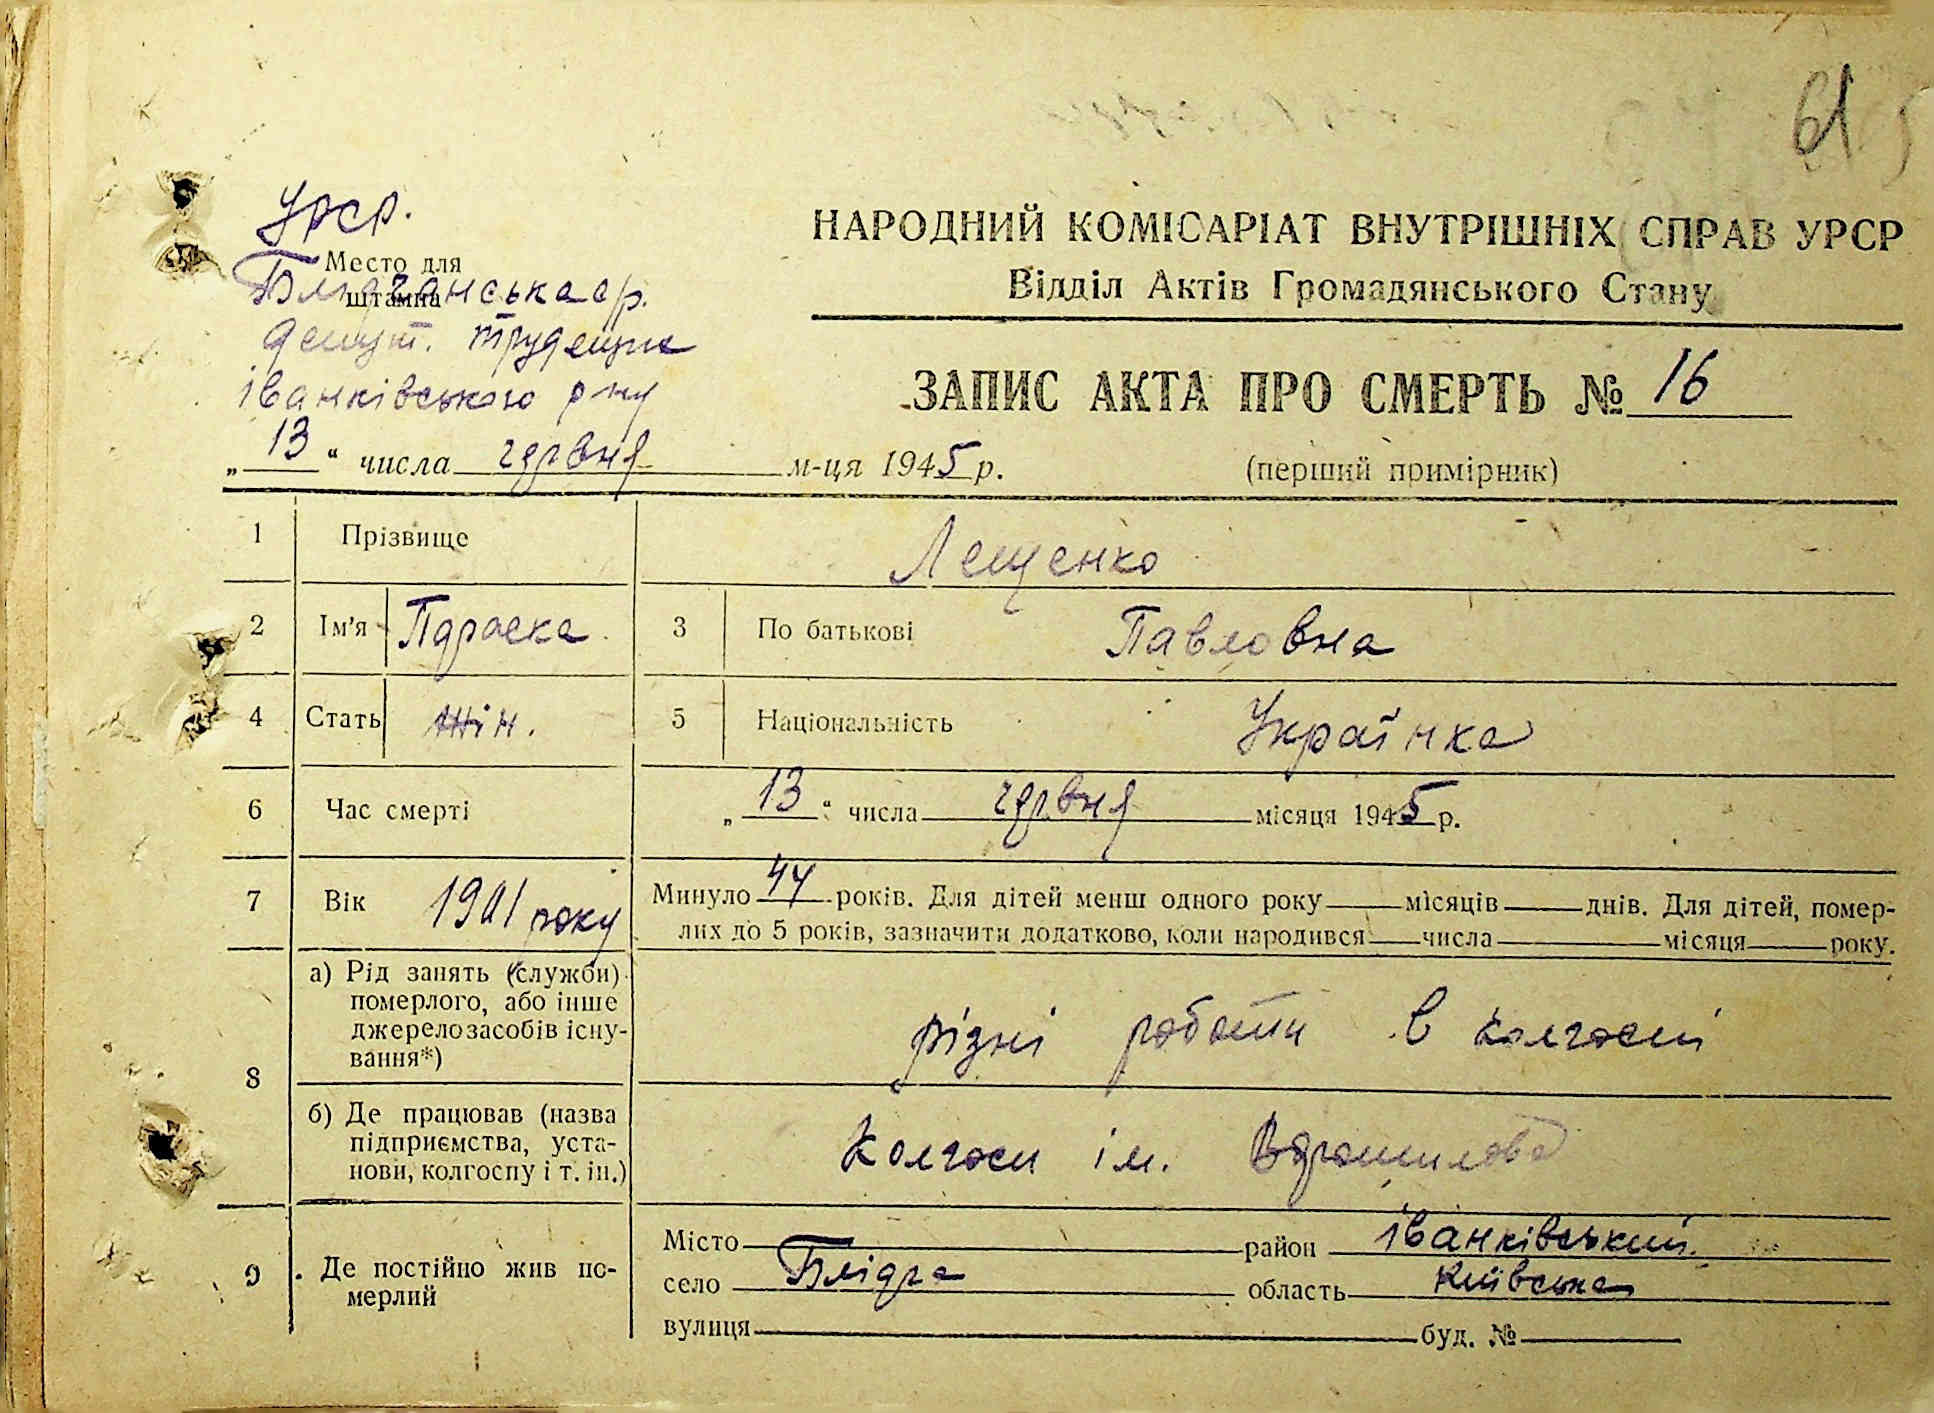 61
УРСР.
Место для
штампа
Блідчанська с/р.
депут. трудящих
Іванківського р-ну
НАРОДНИЙ КОМІСАРІАТ ВНУТРІШНІХ СПРАВ УРСР
Відділ Актів Громадянського Стану
ЗАПИС АКТА ПРО СМЕРТЬ № 16
„13“ числа червня м-ця 1945 р.
(перший примірник)
1 Прізвище Лещенко
2 Ім'я Параска 3 По батькові Павловна
4 Стать жін. 5 Національність Українка
6 Час смерті „13“ числа червня місяця 1945 р.
7 Вік 1901 року Минуло 44 років. Для дітей менш одного року місяців днів. Для дітей, помер-
лих до 5 років, зазначити додатково, коли народився числа місяця року.
8 а) Рід занять (служби)
померлого, або інше
джерело засобів існу-
вання*)
різні роботи в колгоспі
б) Де працював (назва
підприємства, уста-
нови, колгоспу і т. ін.)
Колгосп ім. Ворошилова
9 Де постійно жив по-
мерлий
Місто район Іванківський
село Блідча область Київська
вулиця буд. №